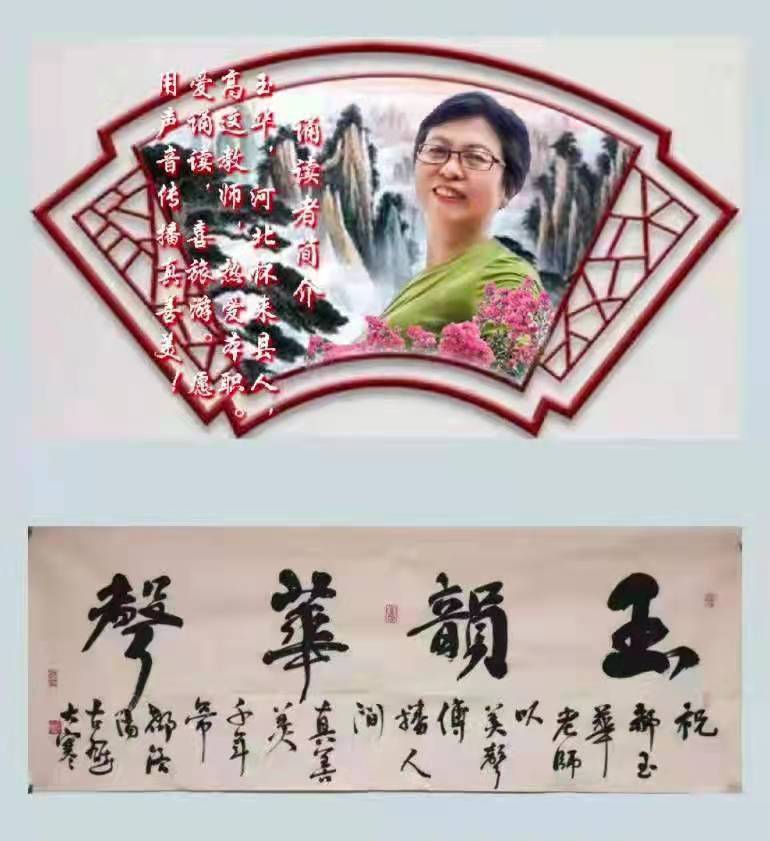 诵读者简介
玉华,河北怀来县人,
高级教师,热爱本职。
爱诵读,喜旅游。愿
用声音传播真善美!
玉韻華聲
祝
郝玉
華
老師
以
美聲
傳
播人
間
真善
美
千年
帝
都洛
陽
古
大寒